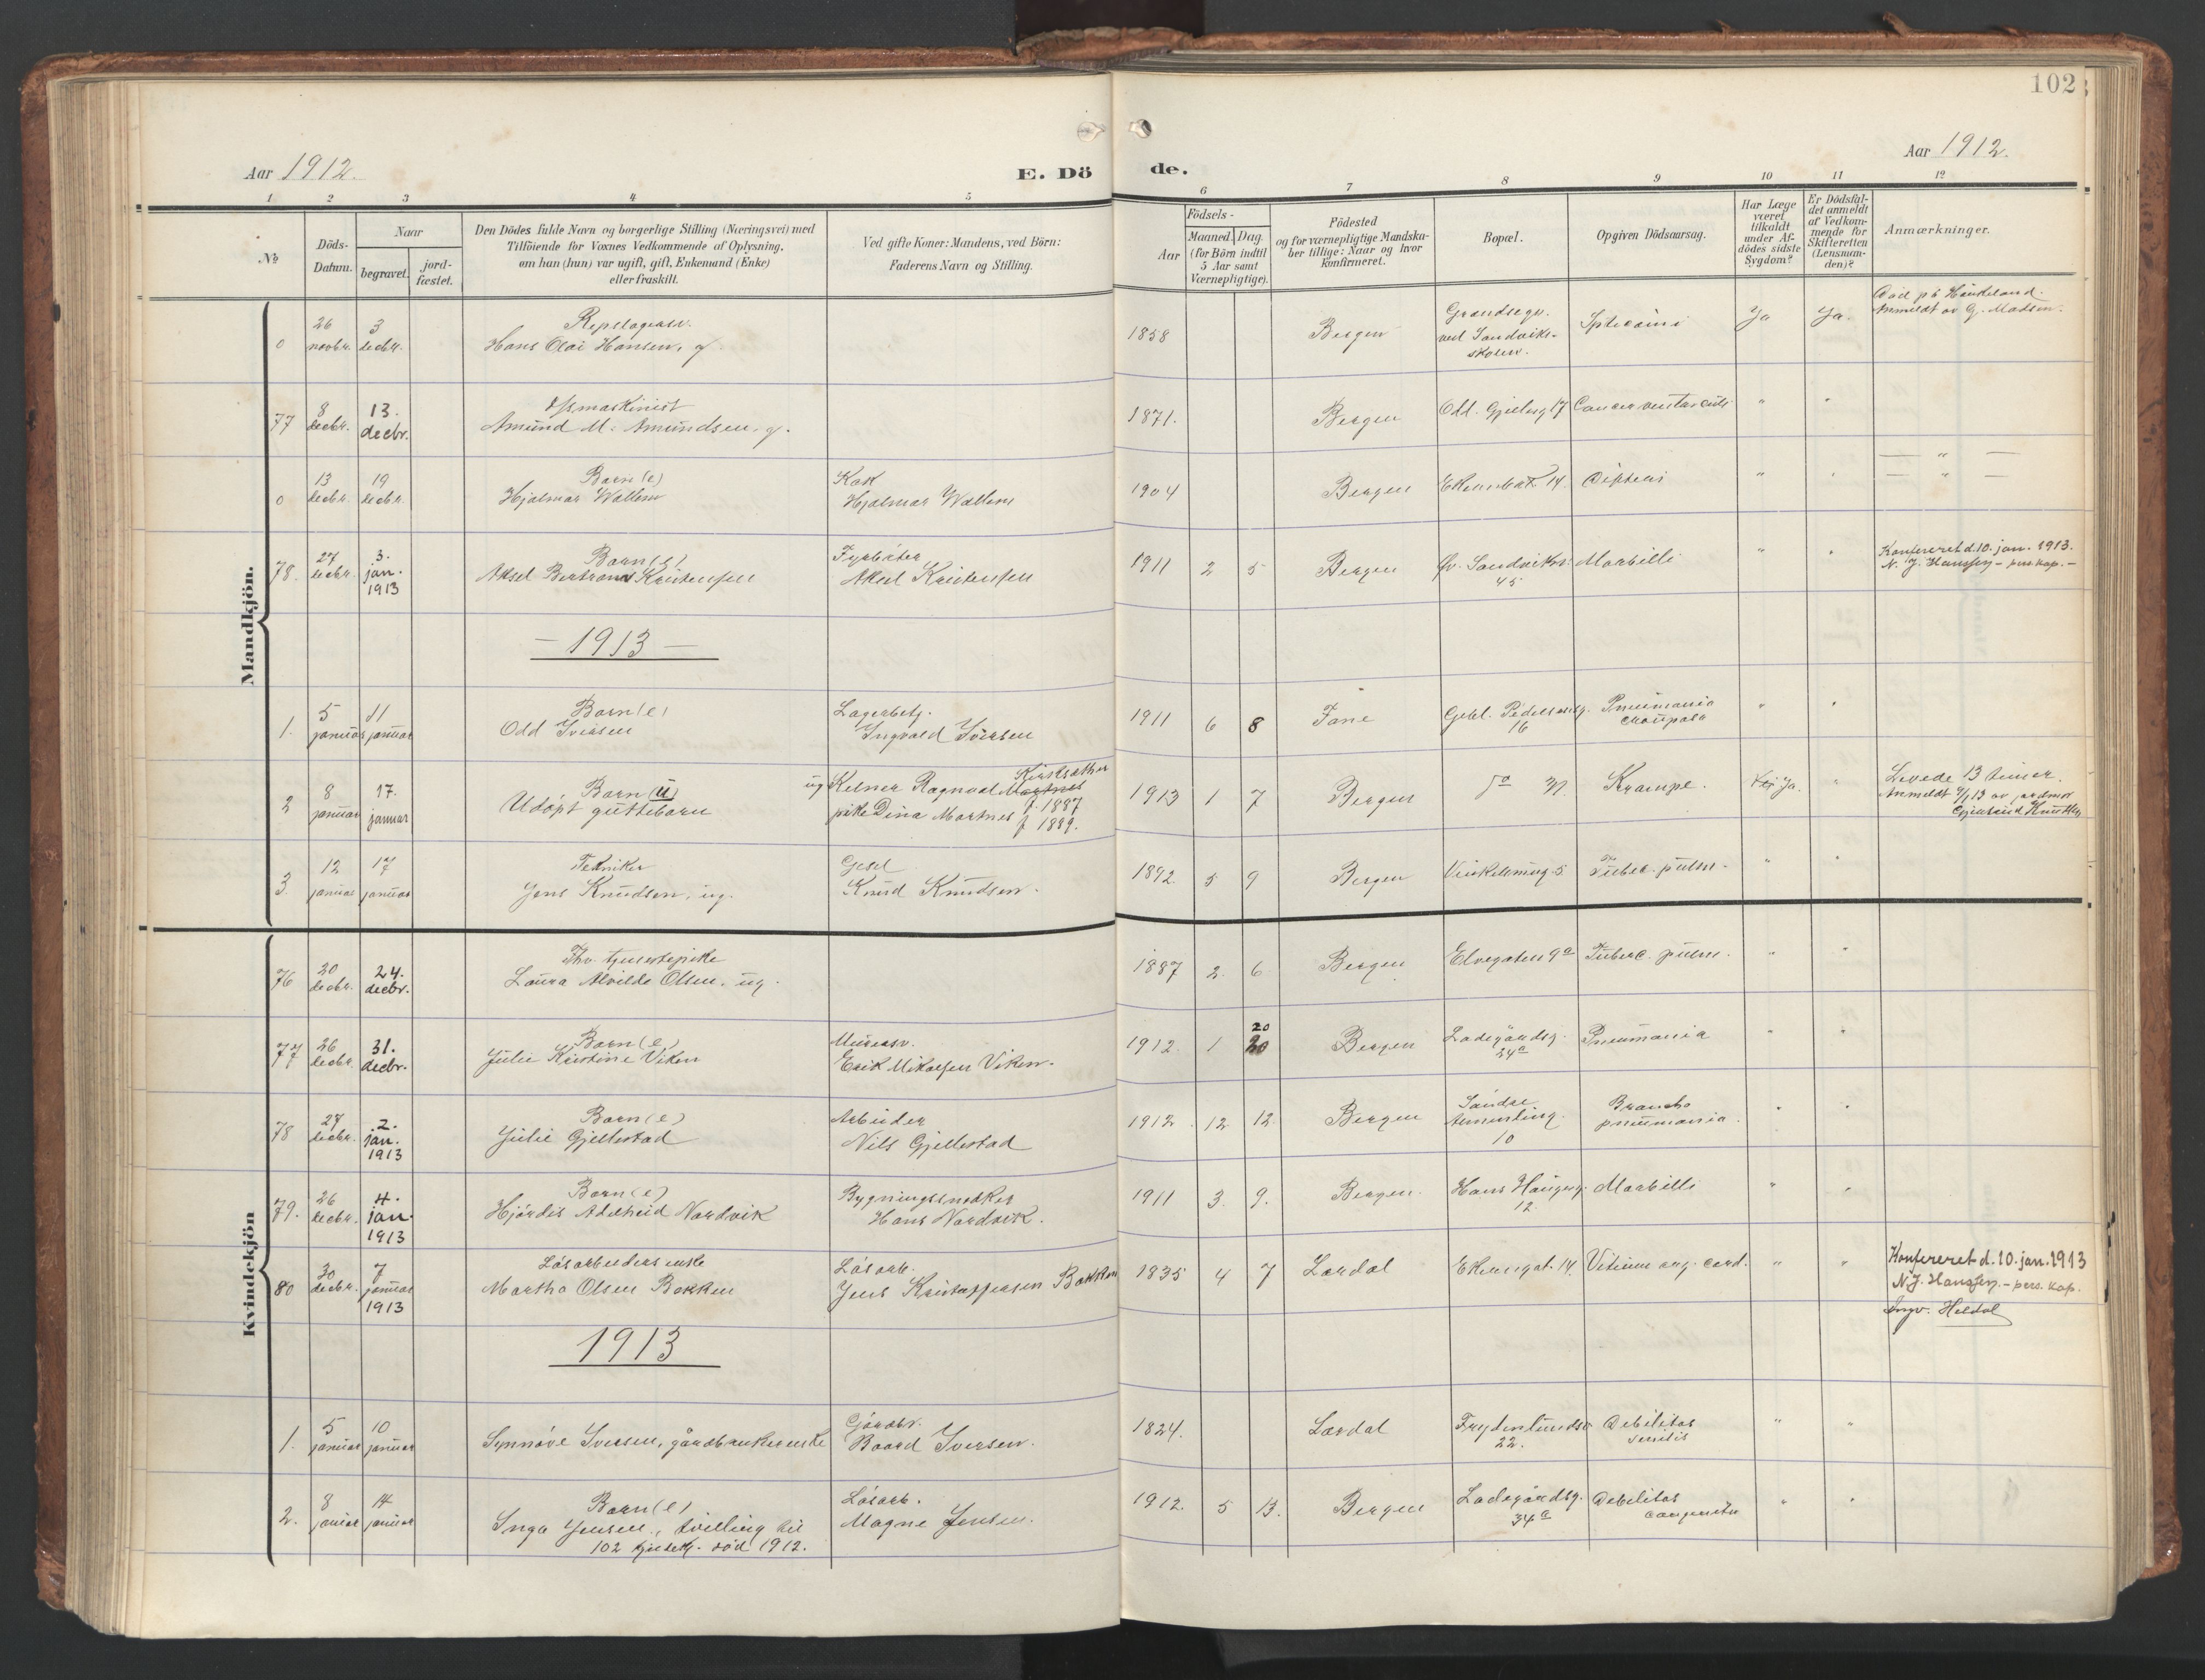 102
Aar 1912.
E. Dö
de.
Aar 1912.
1 2 3 4 5 6 7 8 9 10 11 12
No
Döds-
Datum.
Naar
begravet.
jord-
fæstet.
Den Dödes fulde Navn og borgerlige Stilling (Næringsvei) med
Tilföiende for Voxnes Vedkommende af Oplysning,
om han (hun) var ugift, gift, Enkemand (Enke)
eller fraskilt.
Ved gifte Koner: Mandens, ved Börn:
Faderens Navn og Stilling.
Födsels-
Aar
Maaned.
Dag.
(for Börn indtil
5 Aar samt
Værnepligtige).
Födested
og for værnepligtige Mandska-
ber tillige: Naar og hvor
konfirmeret.
Bopæl.
Opgiven Dödsaarsag.
Har Læge
været
tilkaldt
under Af-
dödes sidste
Sygdom?
Er Dödsfal-
det anmeldt
af Vedkom-
mende for
Skifteretten
(Lensman-
den)?
Anmærkninger.
Mandkjön.
0
26 novbr.
3 decbr.
Repslagerarb.
Hans Olai Hansen, g.
1858
Bergen
Grandsegr.
ved Sandviks-
skolen.
Ja
Ja.
Död på Haukeland.
Anmeldt av G. Madsen.
77
8 decbr.
13. decbr.
Amund M. Amundsen, g.
1871.
Bergen
Cancer ventriculi
" "
0
13 decbr.
19 decbr.
Barn (e)
Hjalmar Wallem
Kok
Hjalmar Wallem
1904
Bergen
" "
— " —
— " —
78.
27 decbr.
3. jan. 1913
Barn (e)
Aksel Bertram Kristensen
Fyrböter
Aksel Kristensen
1911 2 5
Bergen
Øv. Sandviksv.
45
Morbilli
" "
Konfereret d. 10. jan. 1913.
N. J. Hanssen - pers. kap. -
— 1913 —
1.
5 januar
11 januar
Barn (e)
Odd Iversen
Lagerbetj.
Ingvald Iversen
1911 6 8
Fane
16
Pneumonia
" "
2
8 januar
17. januar
Barn (u)
Udöpt guttebarn
ug Kelner Ragnvald Martnes
f. 1887
pike Dina Martnes
f. 1889.
1913 1 7
Bergen
Krampe.
Nei Ja. "
Levede 13 timer.
3.
12 januar
17 januar
Tekniker
Jens Knudsen, ug.
Gesel
Knud Knudsen.
1892. 5 9
Bergen
Tuberc. pulm.
" "
Kvindekjön
76
20 decbr.
24. decbr.
Fhv. tjenestepike
Laura Alvilde Olsen, ug.
1887 2. 6.
Bergen
Elvegaten 9a
Tuberc. pulm.
" "
77
26 decbr.
31. decbr.
Barn (e)
Julie Kristine Viken
Murerarb.
Erik Mikalsen Viken.
1912. 1 20
20
Bergen
Ladegårdsg.
34a
Pneumonia
" "
78
27 decbr.
2. jan. 1913
Barn (e)
Julie Gjellestad
Arbeider
Nils Gjellestad
1912. 12 12.
Bergen
Söndre
10
Broncho
pneumonia.
" "
79.
26 decbr.
4. jan. 1913
Barn (e)
Hjördis Adelheid Nordvik
Bygningssnedker
Hans Nordvik.
1911 3. 9.
Bergen.
Hans Haugesg.
12.
Morbilli
" "
80
30 decbr.
7 januar 1913
Lösarbeiders enke
Martha Olsen Bakken
Lösarb.
Jens Kristoffersen Bakken
1835 4 7
Lærdal
Ekrengat. 14.
Vitium org. cord.
" "
Konfereret d. 10. jan. 1913
N. J. Hanssen. - pers. kap.
Ingv. Heldal
1913
1.
5 januar
10 januar
Synnöve Iversen, gårdbrukerenke
Gårdbr.
Baard Iversen.
1824.
Lærdal
Frydenlundsv.
22.
Debilitas
senilis
" "
2.
8 januar
14 januar
Barn (e)
Inga Jensen, tvilling til
102 kjödelig död 1912.
Lösarb.
Magne Jensen.
1912. 5 13.
Bergen
Ladegårdsg.
34c
Debilitas
congenita
" "